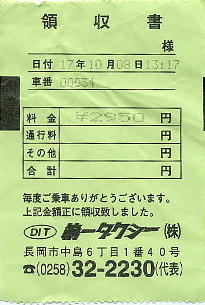 領収書
様
日付 17年10月08日13:17
車番 00034
料金 ¥2950 円
通行料 円
その他 円
合計 円
毎度ご乗車ありがとうございます。
上記金額正に領収致しました。
DIT 第一タクシー(株)
長岡市中島6丁目1番40号
☎(0258)32-2230(代表)